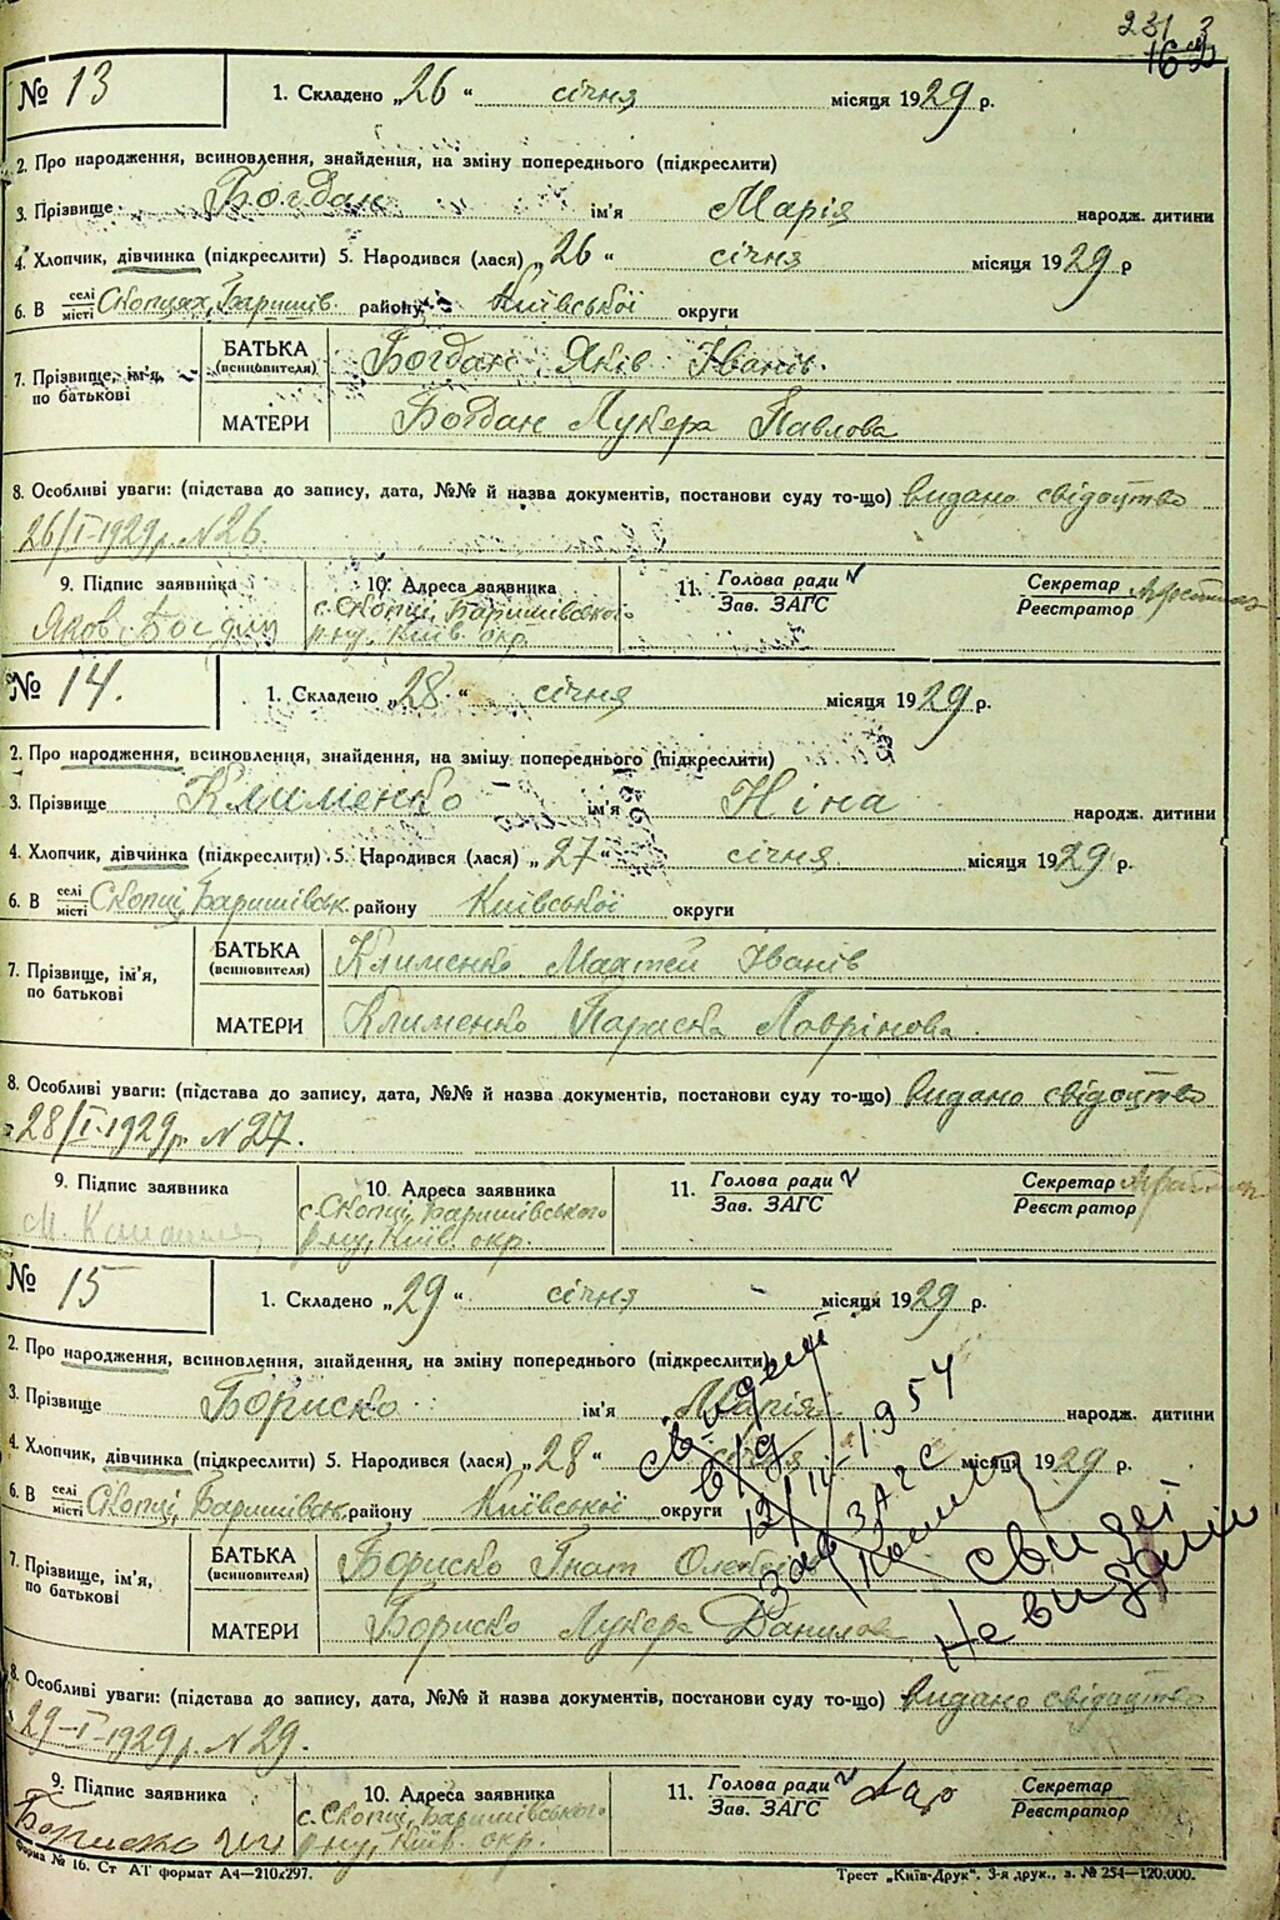 231
№ 13
1. Складено „26“ січня місяця 1929 р.
2. Про народження, всиновлення, знайдення, на зміну попереднього (підкреслити)
3. Прізвище Богдан ім'я Марія народж. дитини
4. Хлопчик, дівчинка (підкреслити) 5. Народився (лася) „26“ січня місяця 1929 р
6. В селі місті Скопцях, Баришів. району Київської округи
7. Прізвище, ім'я, по батькові
БАТЬКА (всиновителя) Богдан Яків Іванів.
МАТЕРИ Богдан Лукера Павлова
8. Особливі уваги: (підстава до запису, дата, №№ й назва документів, постанови суду то-що) видано свідоцтво
26/I-1929 р. N 26.
9. Підпис заявника 10. Адреса заявника 11. Голова ради Зав. ЗАГС Секретар Реєстратор
Яков Богдан с. Скопці, Баришівського
р-ну, Київ. окр.
№ 14.
1. Складено „28“ січня місяця 1929 р.
2. Про народження, всиновлення, знайдення, на зміну попереднього (підкреслити)
3. Прізвище Клименко ім'я Ніна народж. дитини
4. Хлопчик, дівчинка (підкреслити) 5. Народився (лася) „27“ січня місяця 1929 р.
6. В селі місті Скопці, Баришівськ. району Київської округи
7. Прізвище, ім'я, по батькові
БАТЬКА (всиновителя) Клименко Мактей Іванів
МАТЕРИ Клименко Параска Лаврінова.
8. Особливі уваги: (підстава до запису, дата, №№ й назва документів, постанови суду то-що) видано свідоцтво
28/I-1929 р. N 27.
9. Підпис заявника 10. Адреса заявника 11. Голова ради Зав. ЗАГС Секретар Реєстратор
М. с. Скопці, Баришівського
р-ну, Київ. окр.
№ 15
1. Складено „29“ січня місяця 1929 р.
2. Про народження, всиновлення, знайдення, на зміну попереднього (підкреслити)
3. Прізвище Бориско ім'я Марія народж. дитини
4. Хлопчик, дівчинка (підкреслити) 5. Народився (лася) „28“ січня місяця 1929 р.
6. В селі місті Скопці, Баришівськ. району Київської округи
7. Прізвище, ім'я, по батькові
БАТЬКА (всиновителя) Бориско Гнат
МАТЕРИ Бориско Лукера Данилова
12/III-1954
Зав ЗАГС
Не видали
8. Особливі уваги: (підстава до запису, дата, №№ й назва документів, постанови суду то-що) видано свідоцтво
29-I-1929 р. N 29.
9. Підпис заявника 10. Адреса заявника 11. Голова ради Зав. ЗАГС Секретар Реєстратор
Бориско с. Скопці, Баришівського
р-ну, Київ. окр.
Форма № 16. Ст АТ формат А4—210х297.
Трест „Київ-Друк“. 3-я друк., з. № 254—120.000.